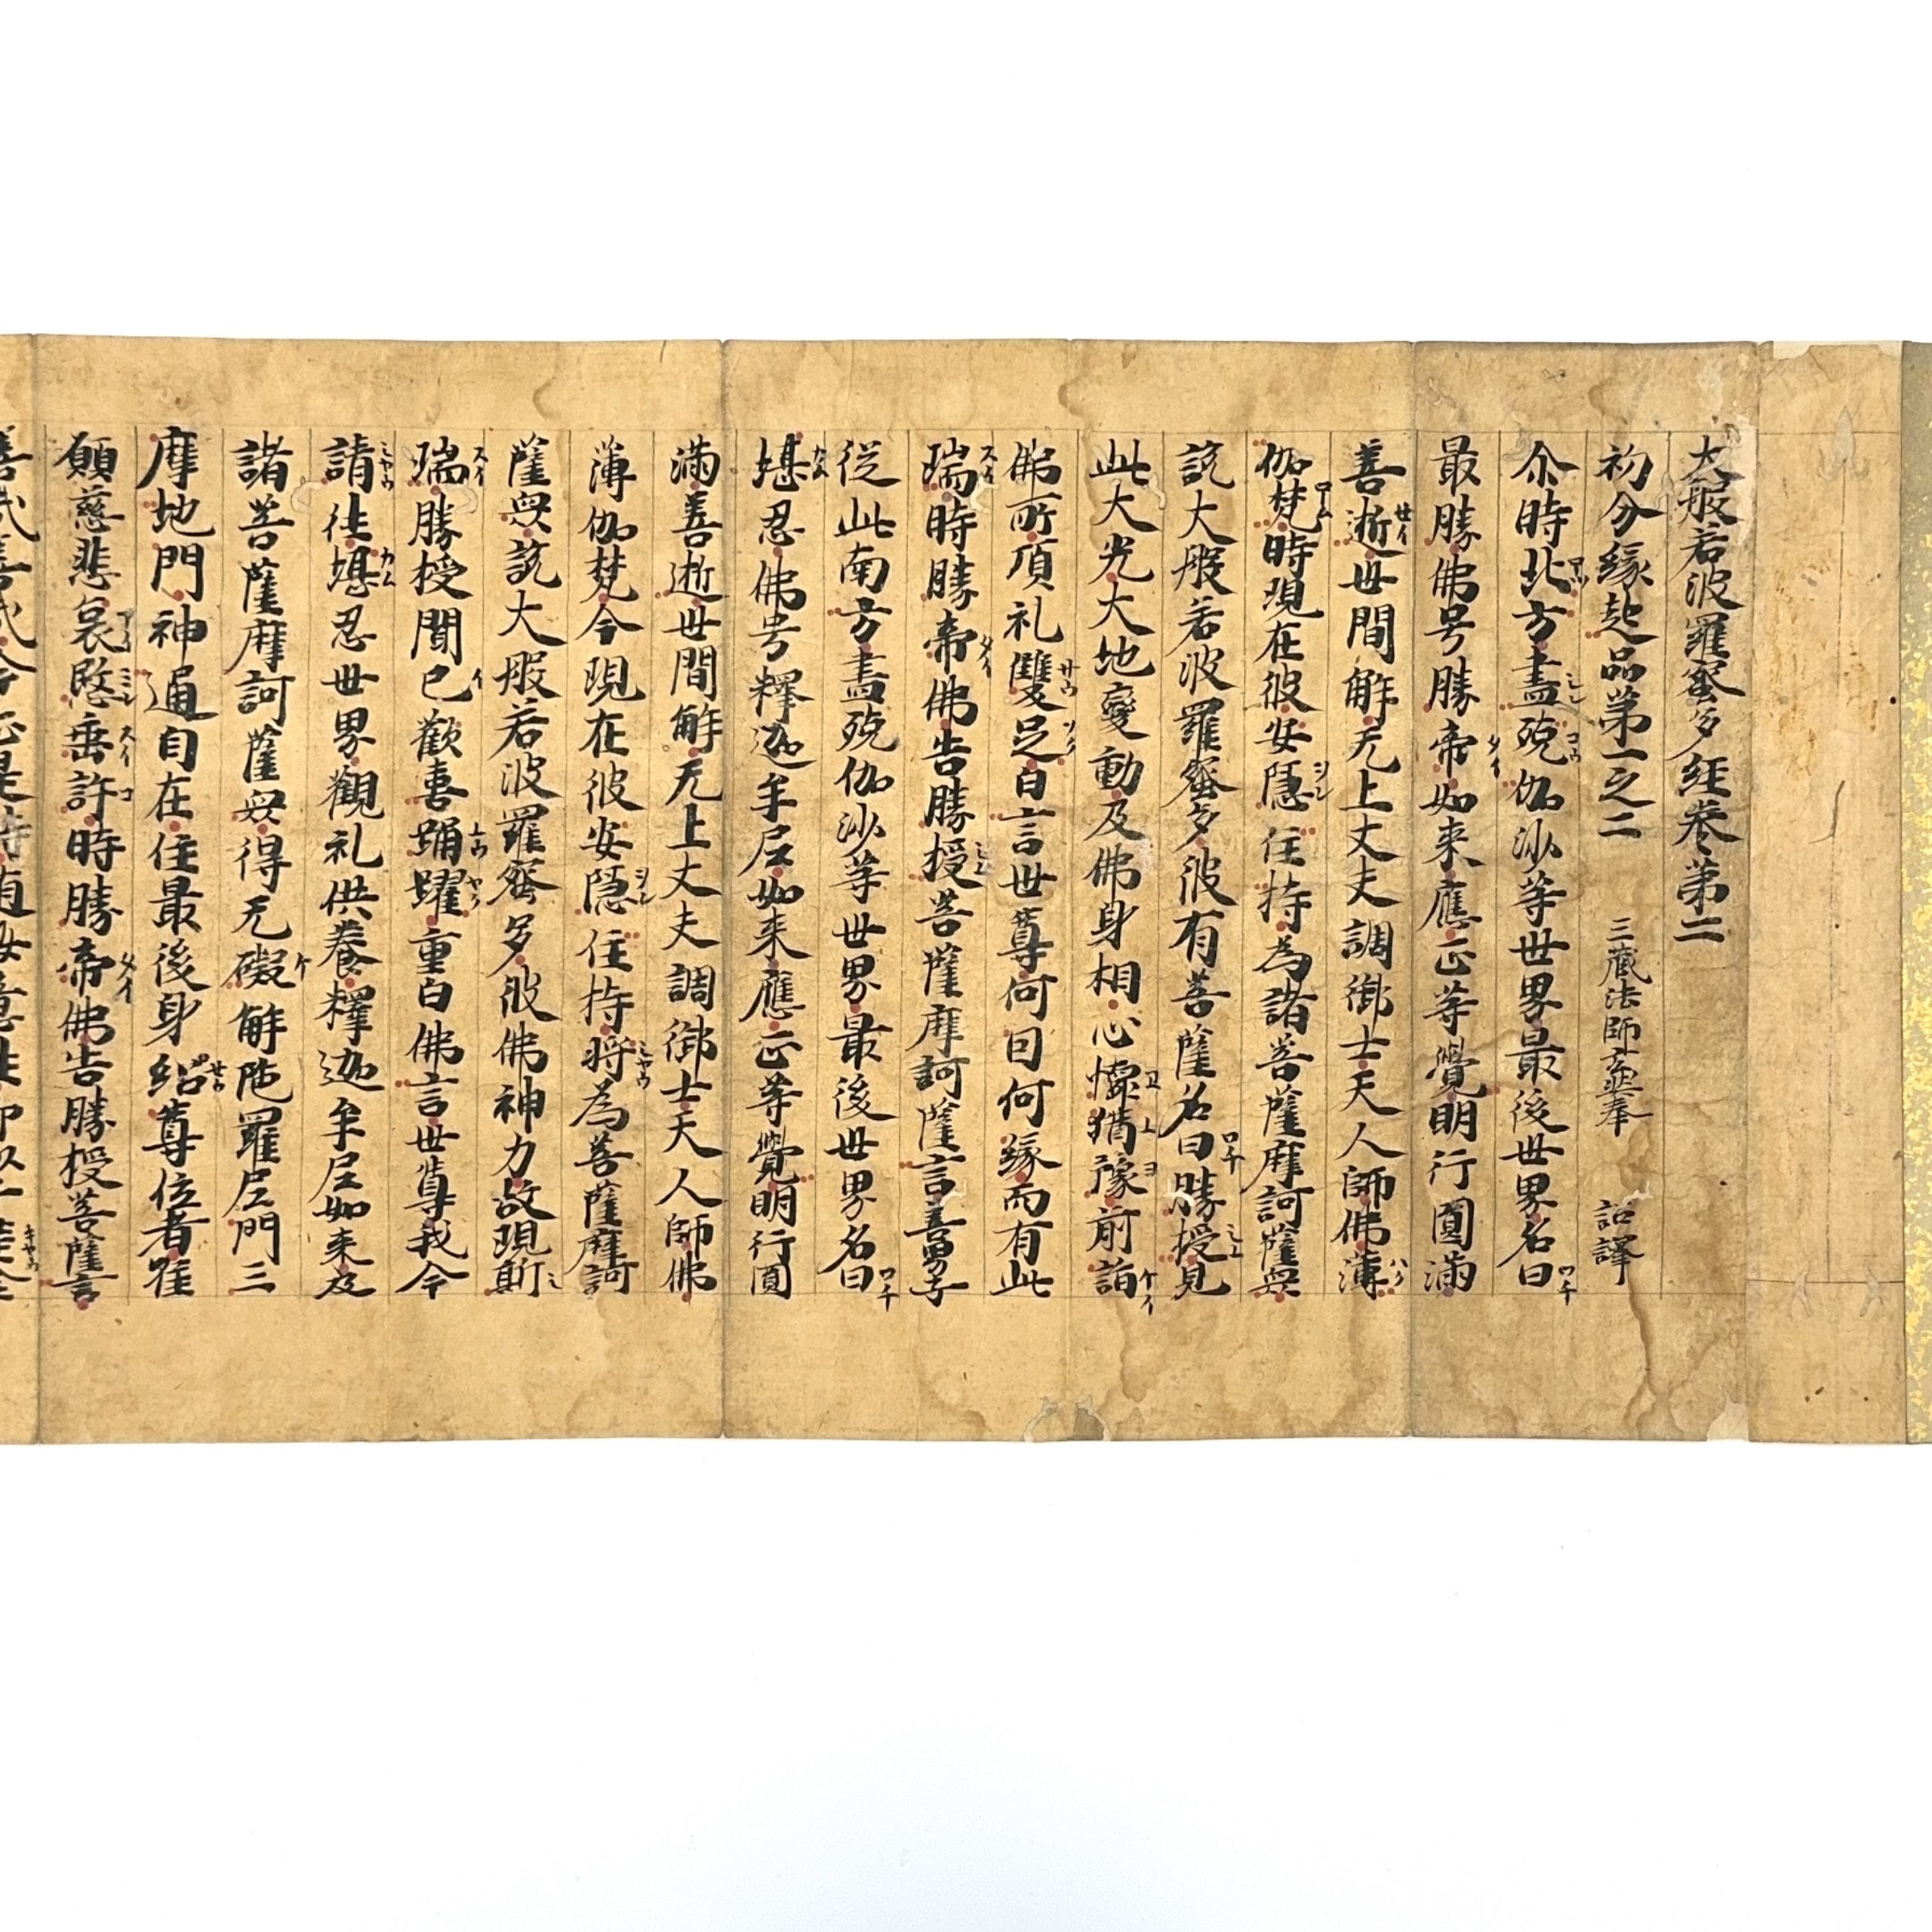 大般若波羅蜜多經巻第二
初分緣起品第一之二 三藏法師玄奘奉 詔譯
尒時北方盡殑伽沙等世界最後世界名曰
最勝佛号勝帝如来應正等覺明行圓滿
善逝世間解无上丈夫調御士天人師佛薄
伽梵時現在彼安隱住持為諸菩薩摩訶薩衆
說大般若波羅蜜多彼有菩薩名曰勝授見
此大光大地變動及佛身相心懷猶豫前詣
佛所頂礼雙足白言世尊何因何緣而有此
瑞時勝帝佛告勝授菩薩摩訶薩言善男子
從此南方盡殑伽沙等世界最後世界名曰
堪忍佛号釋迦牟尼如来應正等覺明行圓
滿善逝世間解无上丈夫調御士天人師佛
薄伽梵今現在彼安隱住持將為菩薩摩訶
薩衆說大般若波羅蜜多彼佛神力故現斯
瑞勝授聞已歡喜踊躍重白佛言世尊我今
請往堪忍世界觀礼供養釋迦牟尼如来及
諸菩薩摩訶薩衆得无礙解陁羅尼門三
摩地門神通自在住最後身紹尊位者唯
願慈悲哀愍垂許時勝帝佛告勝授菩薩言
善哉善哉今正是時隨汝意往即以